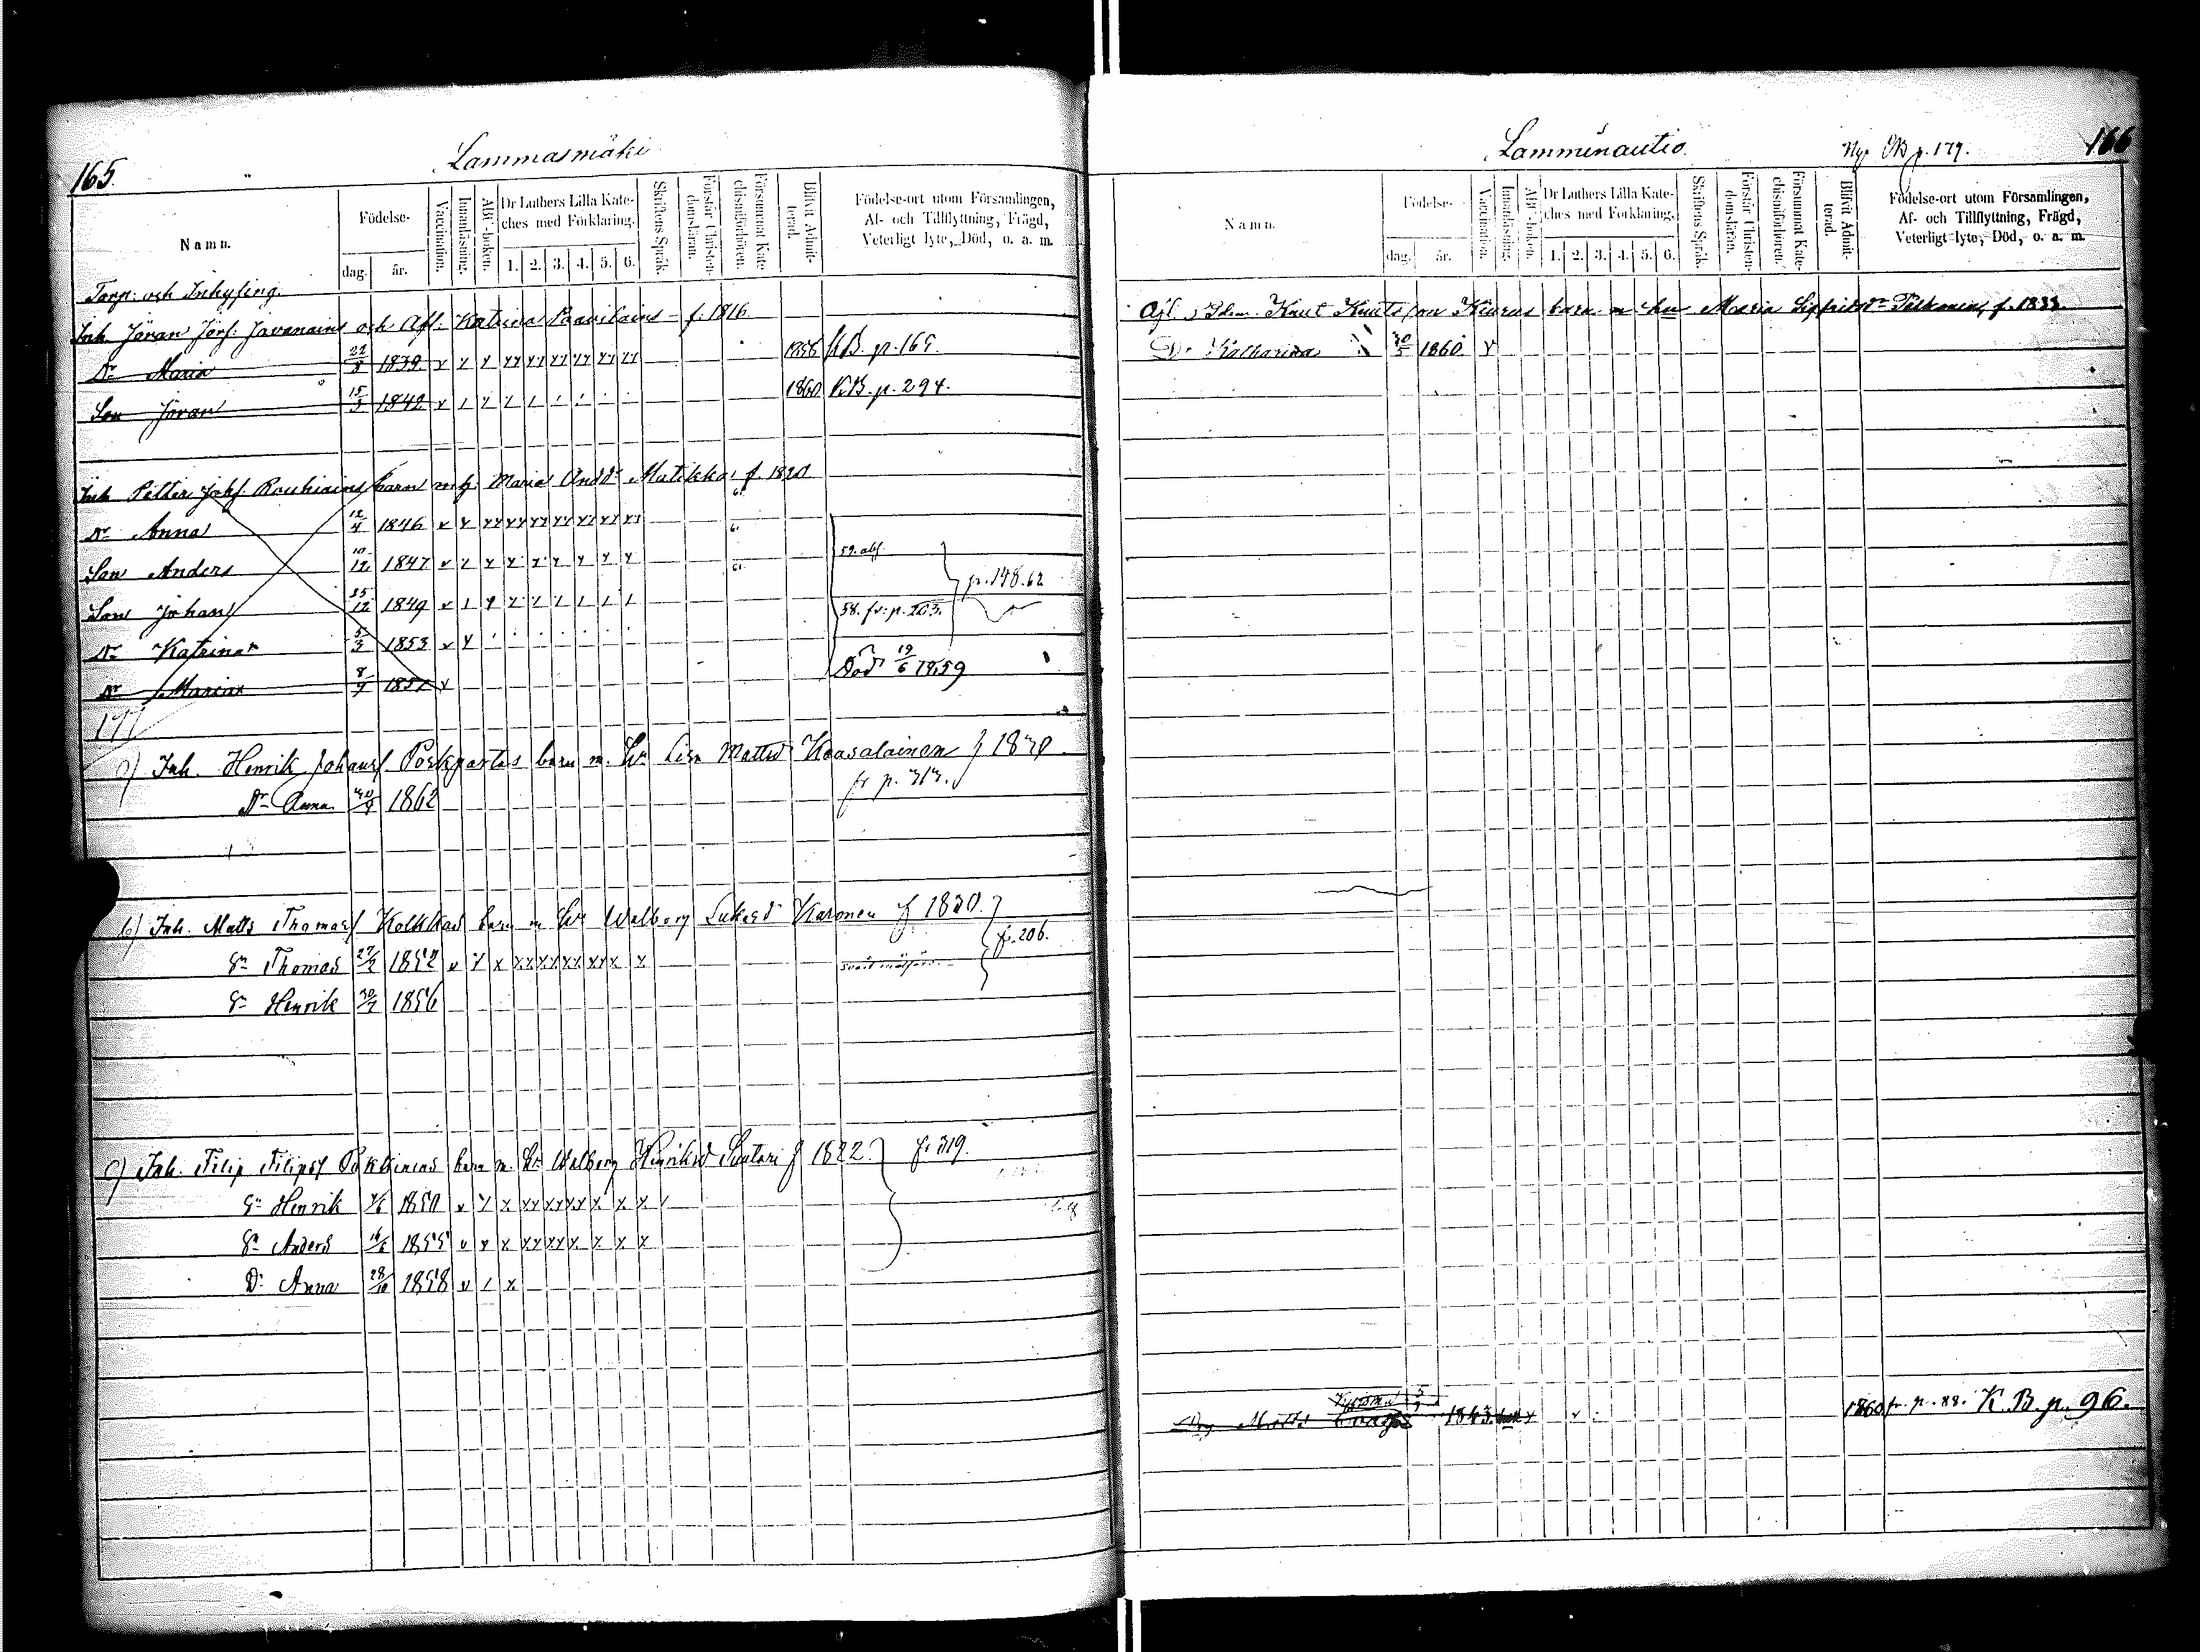 165.
Lammasmäki
Namn.
Födelse-
dag.
år.
Vaccination.
Innanläsning.
ABC-boken.
Dr Luthers Lilla Kate-
ches med Förklaring.
1. 2. 3. 4. 5. 6.
Skriftens Språk.
Förstår Christen-
domsläran.
Försummat Kate-
chismiförhören.
Blifvit Admit-
terad.
Födelse-ort utom Församlingen,
Af- och Tillflyttning, Frägd,
Veterligt lyte, Död, o. a. m.
Torp: och Inhysing.
Inh. Jöran Jörs: Javanains och Afl: Katrina Paavilains f. 1816
Dr Maria 22/3 1839 1858 KB. p. 165.
Son Jöran 15/3 1842 1860 KB. p. 294.
Inh Petter Johs: Rouhiains barn m h: Maria Andd:r Matikka f. 1820
Dr Anna 12/4 1846
Son Anders 10/12 1847 59. abs.
p. 148. 62
Son Johan 25/12 1849 58. fr: p. 203.
Dr Katrina 5/3 1853
Dr Maria 8/9 1857 Död 19/6 1859
a) Inh. Henrik Johans Poskpartas barn m. Hr Lisa Mattsd Kaasalainen f 1830
fr p. 313.
Dr Anna 1862
b) Inh. Matts Thomas Kolkkas barn m Hr Walborg Lukasd Karonen f 1830
fr. 206.
Sn Thomas 27/2 1852
Sn Henrik 30/7 1856
c) Inh. Filip Filips Pokkinens barn m. Hr Walborg Henriksd Suutari f 1822
fr 319.
Sn Henrik 1850
Sn Anders 1855
Dr Anna 28/10 1858
Lammünautio.
Ny OB p. 179.
166
Namn.
Födelse-
dag.
år.
Vaccination.
Innanläsning.
ABC-boken.
Dr Luthers Lilla Kate-
ches med Förklaring.
1. 2. 3. 4. 5. 6.
Skriftens Språk.
Förstår Christen-
domsläran.
Försummat Kate-
chismiförhören.
Blifvit Admit-
terad.
Födelse-ort utom Församlingen,
Af- och Tillflyttning, Frägd,
Veterligt lyte, Död, o. a. m.
Afl. Knut Knutsson Kiurus barn m Maria Sigfridsdr f. 1833.
Dr Katharina 1860
Matts 1843 1860 fr. p. 88. K. B. p. 96.